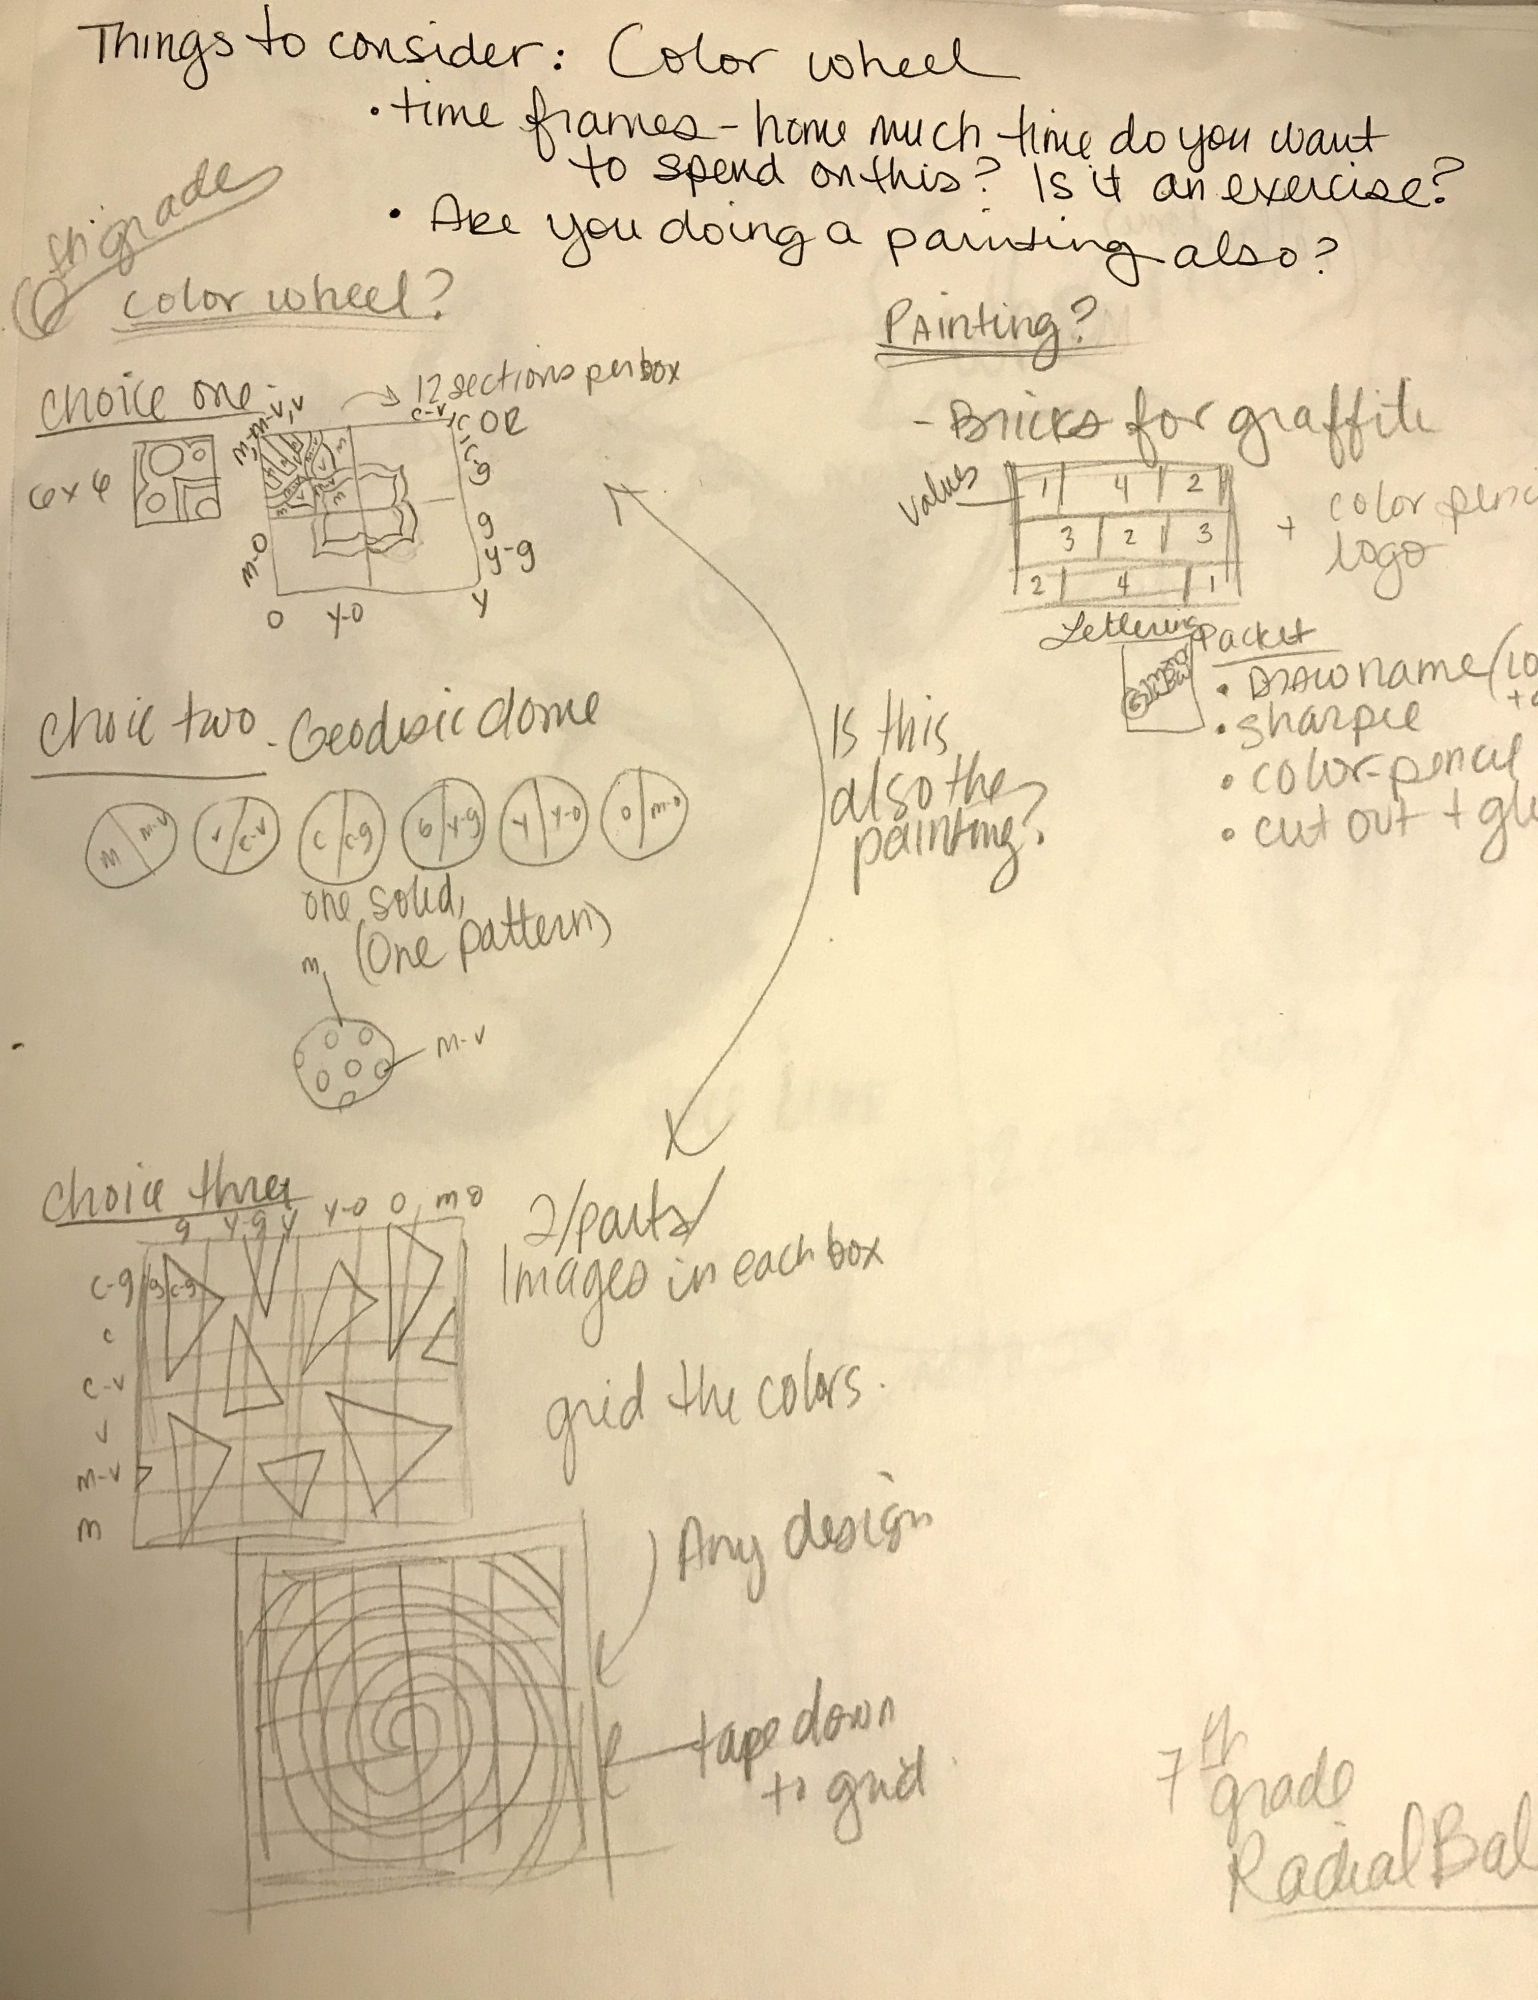 Things to consider: Color wheel
• time frames - home much time do you want
to spend on this? Is it an exercise?
• Are you doing a painting also?
6th grade
color wheel?
choice one
→ 12 sections per box
6x6
m-v, v
c-v, c OR
c-g
g
y-g
m-o
o
y-o
y
Painting?
- Bricks for graffiti
values
1 4 2
3 2 3
2 4 1
+ color penc
logo
Lettering Packet
• Draw name (
• sharpie
• color-pencil
• cut out + glu
choice two - Geodesic dome
m m-v
v c-v
c c-g
G y-g
y y-o
o m-o
one solid,
(One pattern)
m
m-v
Is this
also the
painting?
choice three
g y-g y y-o o m o
c-g g c-g
c
c-v
v
m-v
m
2/parts/
Images in each box
grid the colors.
Any design
tape down
to grid.
7th
grade
Radial Bal